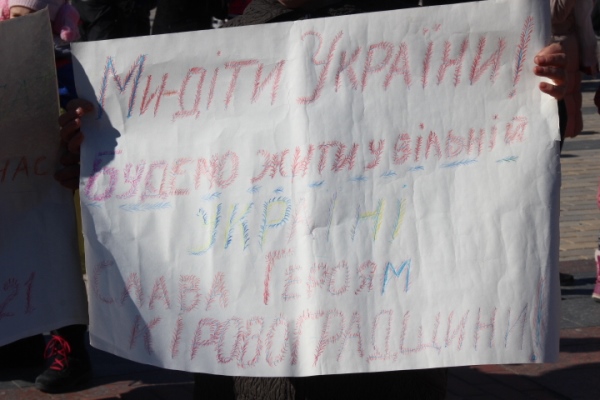 Ми-діти України!
Будемо жити у вільній
Україні
Слава Героям
Кіровоградщини!
21